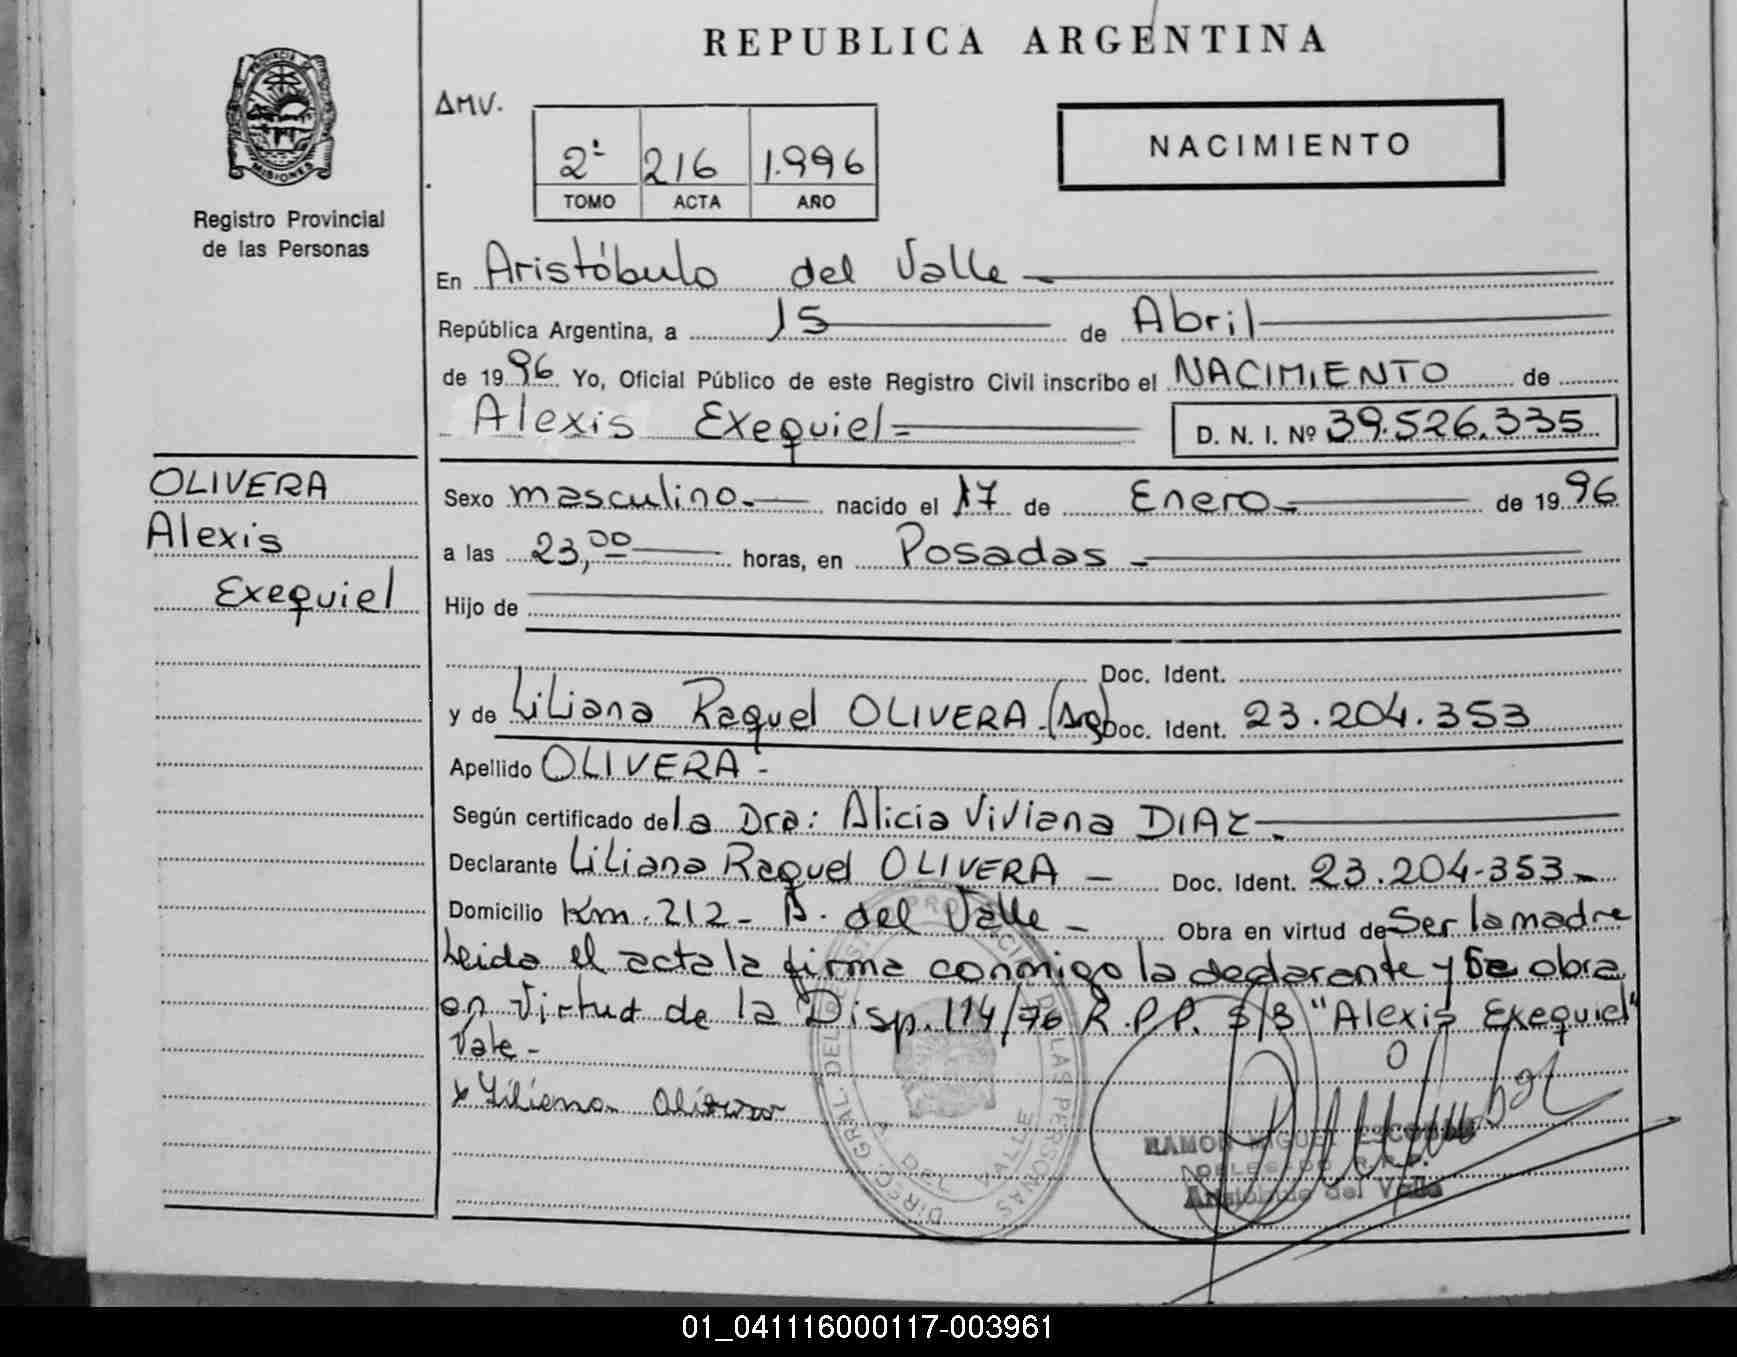 REPUBLICA ARGENTINA
PROVINCIA DE
MISIONES
Registro Provincial
de las Personas
AMV.
2º 216 1.996
TOMO ACTA AÑO
NACIMIENTO
En Aristóbulo del Valle
República Argentina, a 15 de Abril
de 1996 Yo, Oficial Público de este Registro Civil inscribo el NACIMIENTO de
Alexis Exequiel= D. N. I. Nº 39.526.335
OLIVERA
Alexis
Exequiel
Sexo masculino.- nacido el 17 de Enero.- de 1996
a las 23,00 horas, en Posadas -
Hijo de
Doc. Ident.
y de Liliana Raquel OLIVERA.(Arg) Doc. Ident. 23.204.353
Apellido OLIVERA.-
Según certificado de la Dra: Alicia Viviana DIAZ.
Declarante Liliana Raquel OLIVERA - Doc. Ident. 23.204.353-
Domicilio Km. 212- A. del Valle - Obra en virtud de Ser la madre
Leida el acta la firma conmigo la declarante y se obra
en virtud de la Disp. 114/76 R.P.P. S/B "Alexis Exequiel"
Vale-
x Liliana Olivera
DIREC. GRAL. DEL REGISTRO PROVINCIAL DE LAS PERSONAS
A. DEL VALLE
RAMON MIGUEL ESCOBAR
DELEGADO R.P.P.
Aristóbulo del Valle
01_041116000117-003961